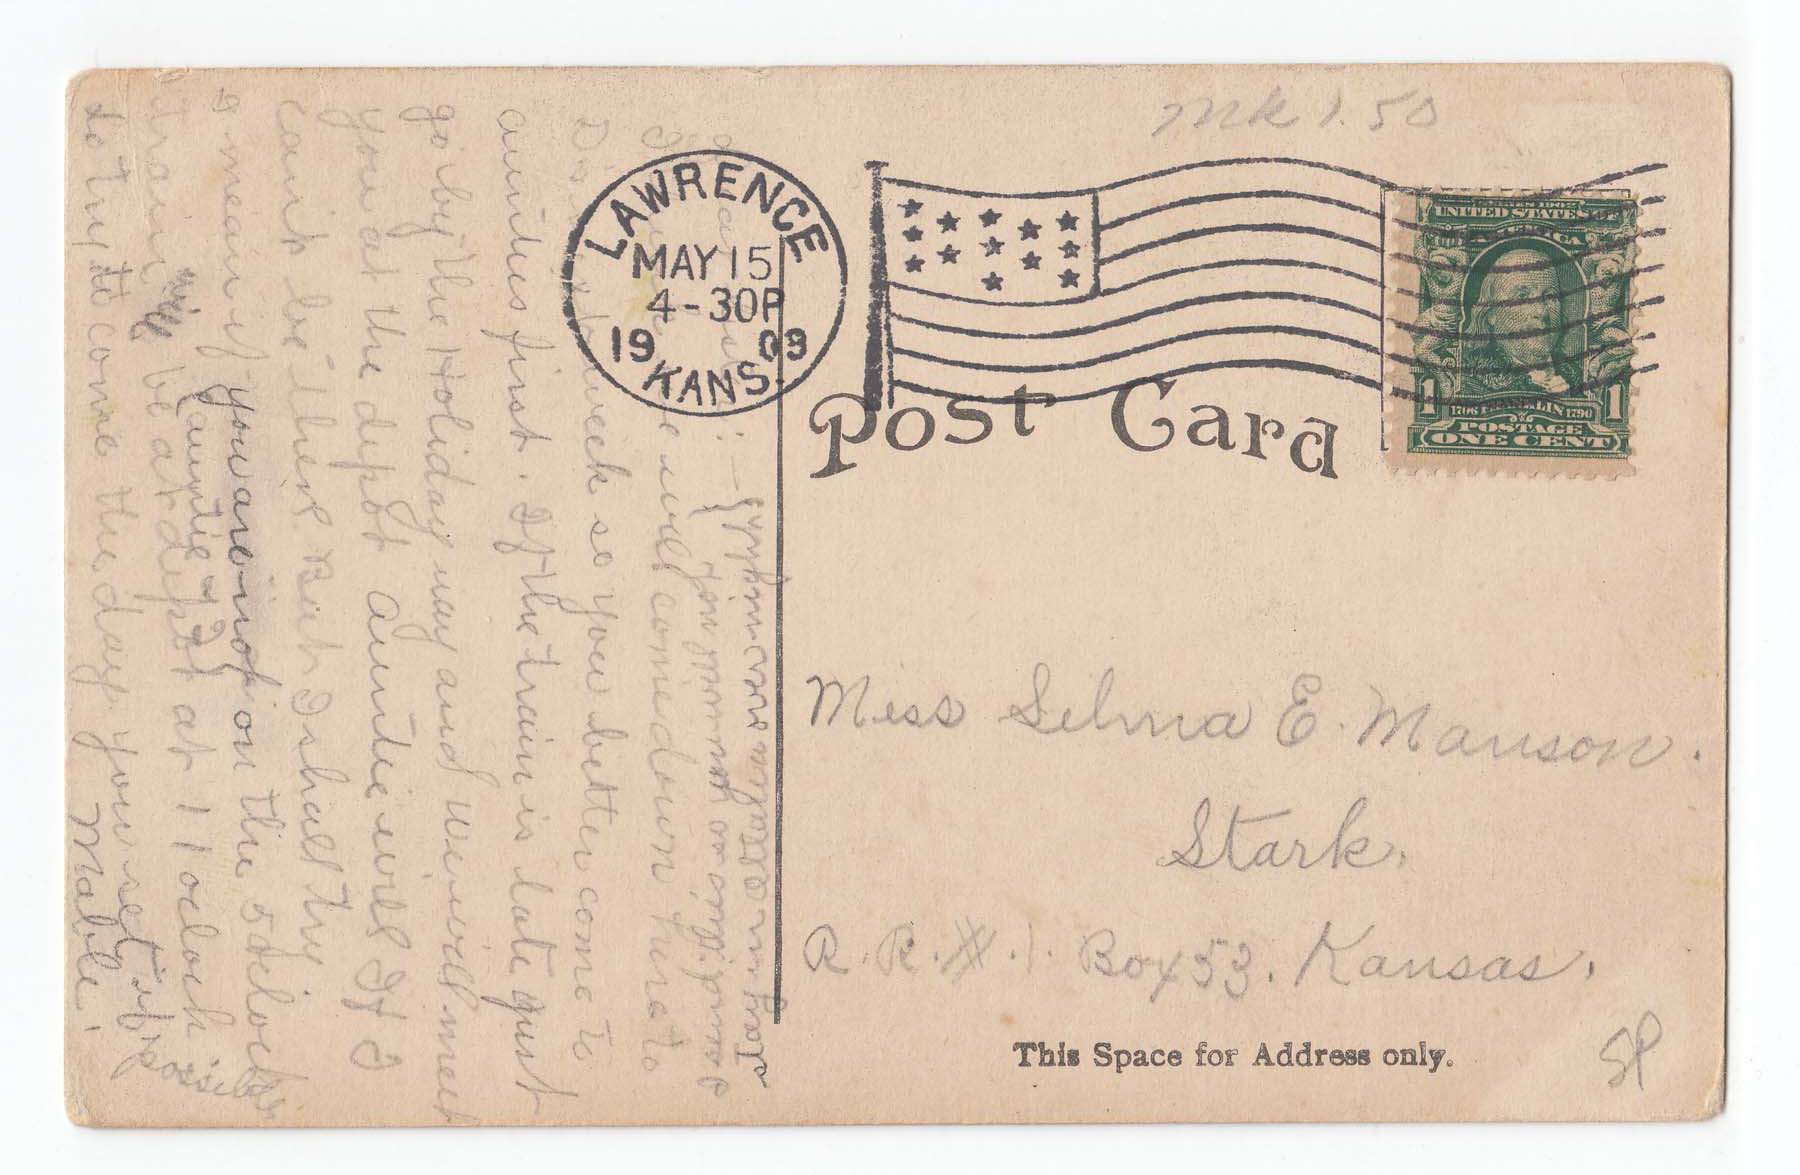 Mk 1.50
LAWRENCE
MAY 15
4-30P
19 09
KANS.
SERIES 1902
UNITED STATES OF
AMERICA
1 1
1706 FRANKLIN 1790
POSTAGE
ONE CENT
Post Card
Miss Selma E. Manson.
Stark.
R. R. #. 1. Box 53. Kansas.
This Space for Address only.
SP
will come down here to
week so you better come to
aunties first. If the train is late just
go by the Holiday way and we will meet
you at the depot auntie will If I
can't be there But I shall try
I mean if you are not on the 5 oclock
{auntie & I}
train will be at depot at 11 oclock
to try to come the day you set if possible.
Mable.